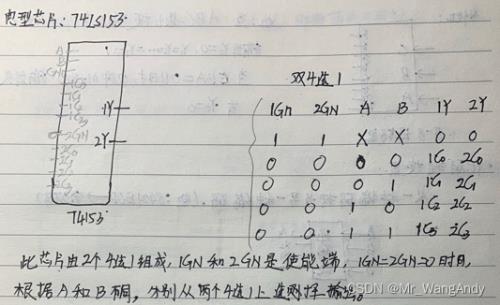 典型芯片: 74LS153
A
B
1GN
1C0
1C1
1C2
1C3
2GN
2C0
2C1
2C2
2C3
1Y
2Y
74153
双4选1
1GN 2GN A B 1Y 2Y
1 1 X X 0 0
0 0 0 0 1C0 2C0
0 0 0 1 1C1 2C1
0 0 1 0 1C2 2C2
0 0 1 1 1C3 2C3
此芯片由2个4选1组成, 1GN 和 2GN 是使能端, 1GN=2GN=0时,
根据A和B 分别从两个4选1上 选择
CSDN @Mr_WangAndy